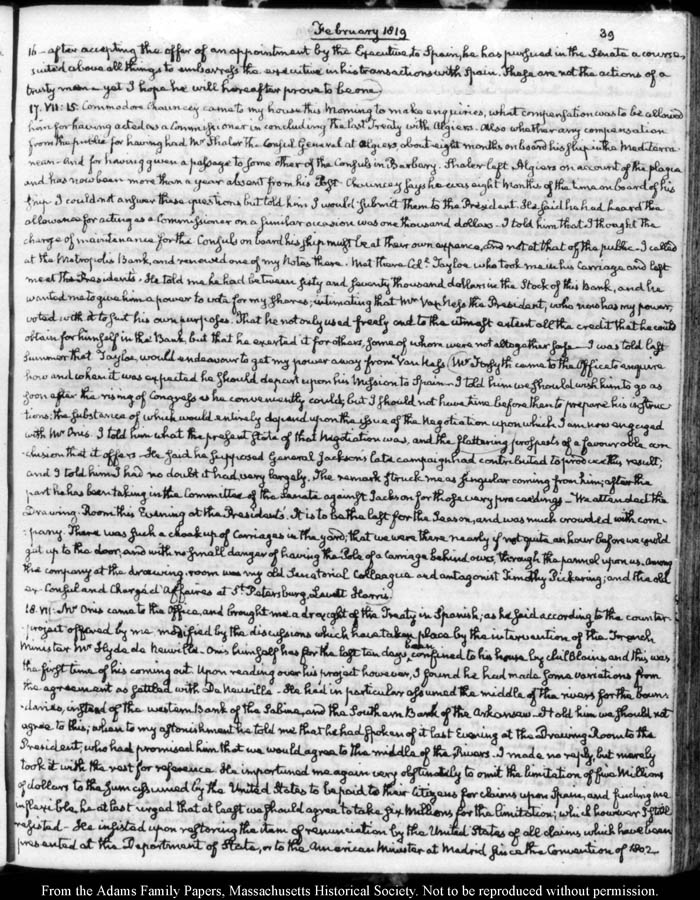 February 1819
39
16 - after accepting the offer of an appointment by the Executive to Spain, he has pursued in the Senate a course,
suited above all things to embarrass the executive in his transactions with Spain. These are not the actions of a
trusty man - yet I hope he will hereafter prove to be one.
17. VII: 15: Commodore Chauncey came to my house this Morning to make enquiries, what compensation was to be allowed
him for having acted as a Commissioner in concluding the last Treaty with Algiers. Also whether any compensation
from the public for having had Mr Shaler the Consul General at Algiers about eight months on board his ship in the Mediterra-
nean - And for having given a passage to some other of the Consuls in Barbary. Shaler left Algiers on account of the plague
and has now been more than a year absent from his Post. Chauncey says he was eight Months of the time on board of his
ship. I could not answer these questions but told him I would submit them to the President. He said he had heard the
allowance for acting as a Commissioner on a similar occasion was one thousand dollars. I told him that I thought the
charge of maintenance for the Consuls on board his ship must be at their own expence, and not at that of the public. I called
at the Metropolis Bank, and renewed one of my Notes there. Met there Coll. Tayloe who took me in his Carriage and left
me at the Presidents. He told me he had between fifty and seventy thousand dollars in the Stock of this Bank, and he
wanted me to give him a power to vote for my shares; intimating that Mr Van Ness the President, who now has my power,
voted with it to suit his own purposes. That he not only used freely and to the utmost extent all the credit that he could
obtain for himself in the Bank, but that he exerted it for others, some of whom were not altogether safe - I was told last
Summer that Tayloe, would endeavour to get my power away from Van Ness. Mr Forsyth came to the Office to enquire
how and when it was expected he should depart upon his Mission to Spain - I told him we should wish him to go as
soon after the rising of Congress as he conveniently could; but I should not have time before then to prepare his instruc-
tions; the substance of which would entirely depend upon the issue of the Negotiation upon which I am now engaged
with Mr Onis. I told him what the present state of that Negotiation was, and the flattering prospects of a favourable con-
clusion that it offers. He said he supposed General Jackson's late campaign had contributed to produce this result;
and I told him I had no doubt it had, very largely. The remark struck me as singular coming from him; after the
part he has been taking in the Committee of the Senate against Jackson for those very proceedings - We attended the
Drawing-Room this Evening at the Presidents. It is to be the last for the Season, and was much crowded with com-
:pany. There was such a choak up of Carriages in the yard, that we were there nearly if not quite an hour before we could
get up to the door; and with no small danger of having the Pole of a Carriage behind ours, through the pannel upon us. Among
the company at the drawing-room was my old Senatorial Colleague and antagonist Timothy Pickering; and the old
ex-Consul and Chargé d'Affaires at St Petersburg Levett Harris.
18. VII: Mr Onis came to the Office, and brought me a draught of the Treaty in Spanish; as he said according to the counter-
project offered by me modified by the discussions which have taken place by the intervention of the French
Minister Mr Hyde de Neuville. Onis himself has for the last ten days been confined to his house by chilblains and this was
the first time of his coming out. Upon reading over his project however, I found he had made some variations from
the agreement as settled with De Neuville - He had in particular assumed the middle of the rivers for the boun-
:daries, instead of the western Bank of the Sabine, and the Southern Bank of the Arkansaw. I told him we should not
agree to this; when to my astonishment he told me that he had spoken of it last Evening at the Drawing Room to the
President, who had promised him that we would agree to the middle of the Rivers. I made no reply, but merely
took it with the rest for reference. He importuned me again very obstinately to omit the limitation of five Millions
of dollars to the sum assumed by the United States to be paid to their Citizens for claims upon Spain, and finding me
inflexible, he at last urged that at least we should agree to take six Millions for the limitation; which however I still
resisted - He insisted upon restoring the item of renunciation by the United States of all claims which have been
presented at the Department of State, or to the American Minister at Madrid since the Convention of 1802
From the Adams Family Papers, Massachusetts Historical Society. Not to be reproduced without permission.